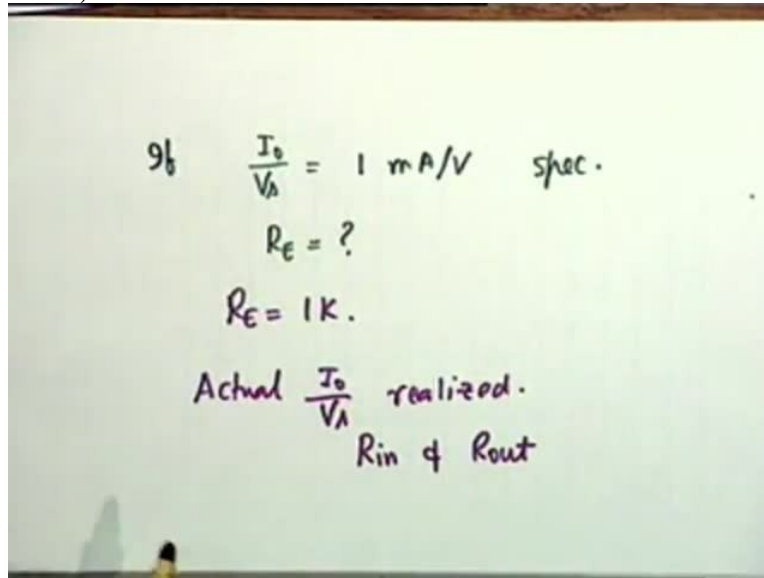 If I₀/Vₛ = 1 mA/V spec.
R_E = ?
R_E = 1K.
Actual I₀/Vₛ realized.
Rin & Rout